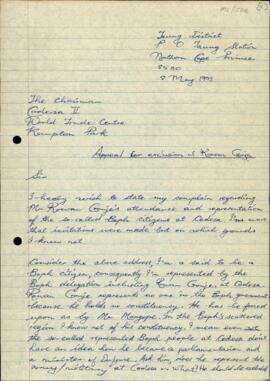 Taung District
P O Taung Station
Northern Cape Province
8580
8 May 1992
The Chairman
Codesa II
World Trade Centre
Kempton Park
Appeal for exclusion of Rowan Cronje
Sir
I hereby wish to state my complain regarding
Mr Rowan Cronje's attendance and representation
of the so-called Boph citizens at Codesa. I'm aware
that invitations were made but on which grounds
I know not
Consider the above address, I'm a said to be a
Boph citizen, consequently I'm represented by the
Boph delegation including Rowan Cronje, at Codesa
Rowan Cronje represents no one in the Boph government
because he holds no constituency. He has ju
upon us by Mr Mangope. In the Boph's scattered
region I know not of his constituency, I mean even
the so-called represented Boph people at Codesa don't
have an idea how he became a parliamentarian and
a minister of Defence. Ask him does he represent the
army/military at Codesa or what? He should be